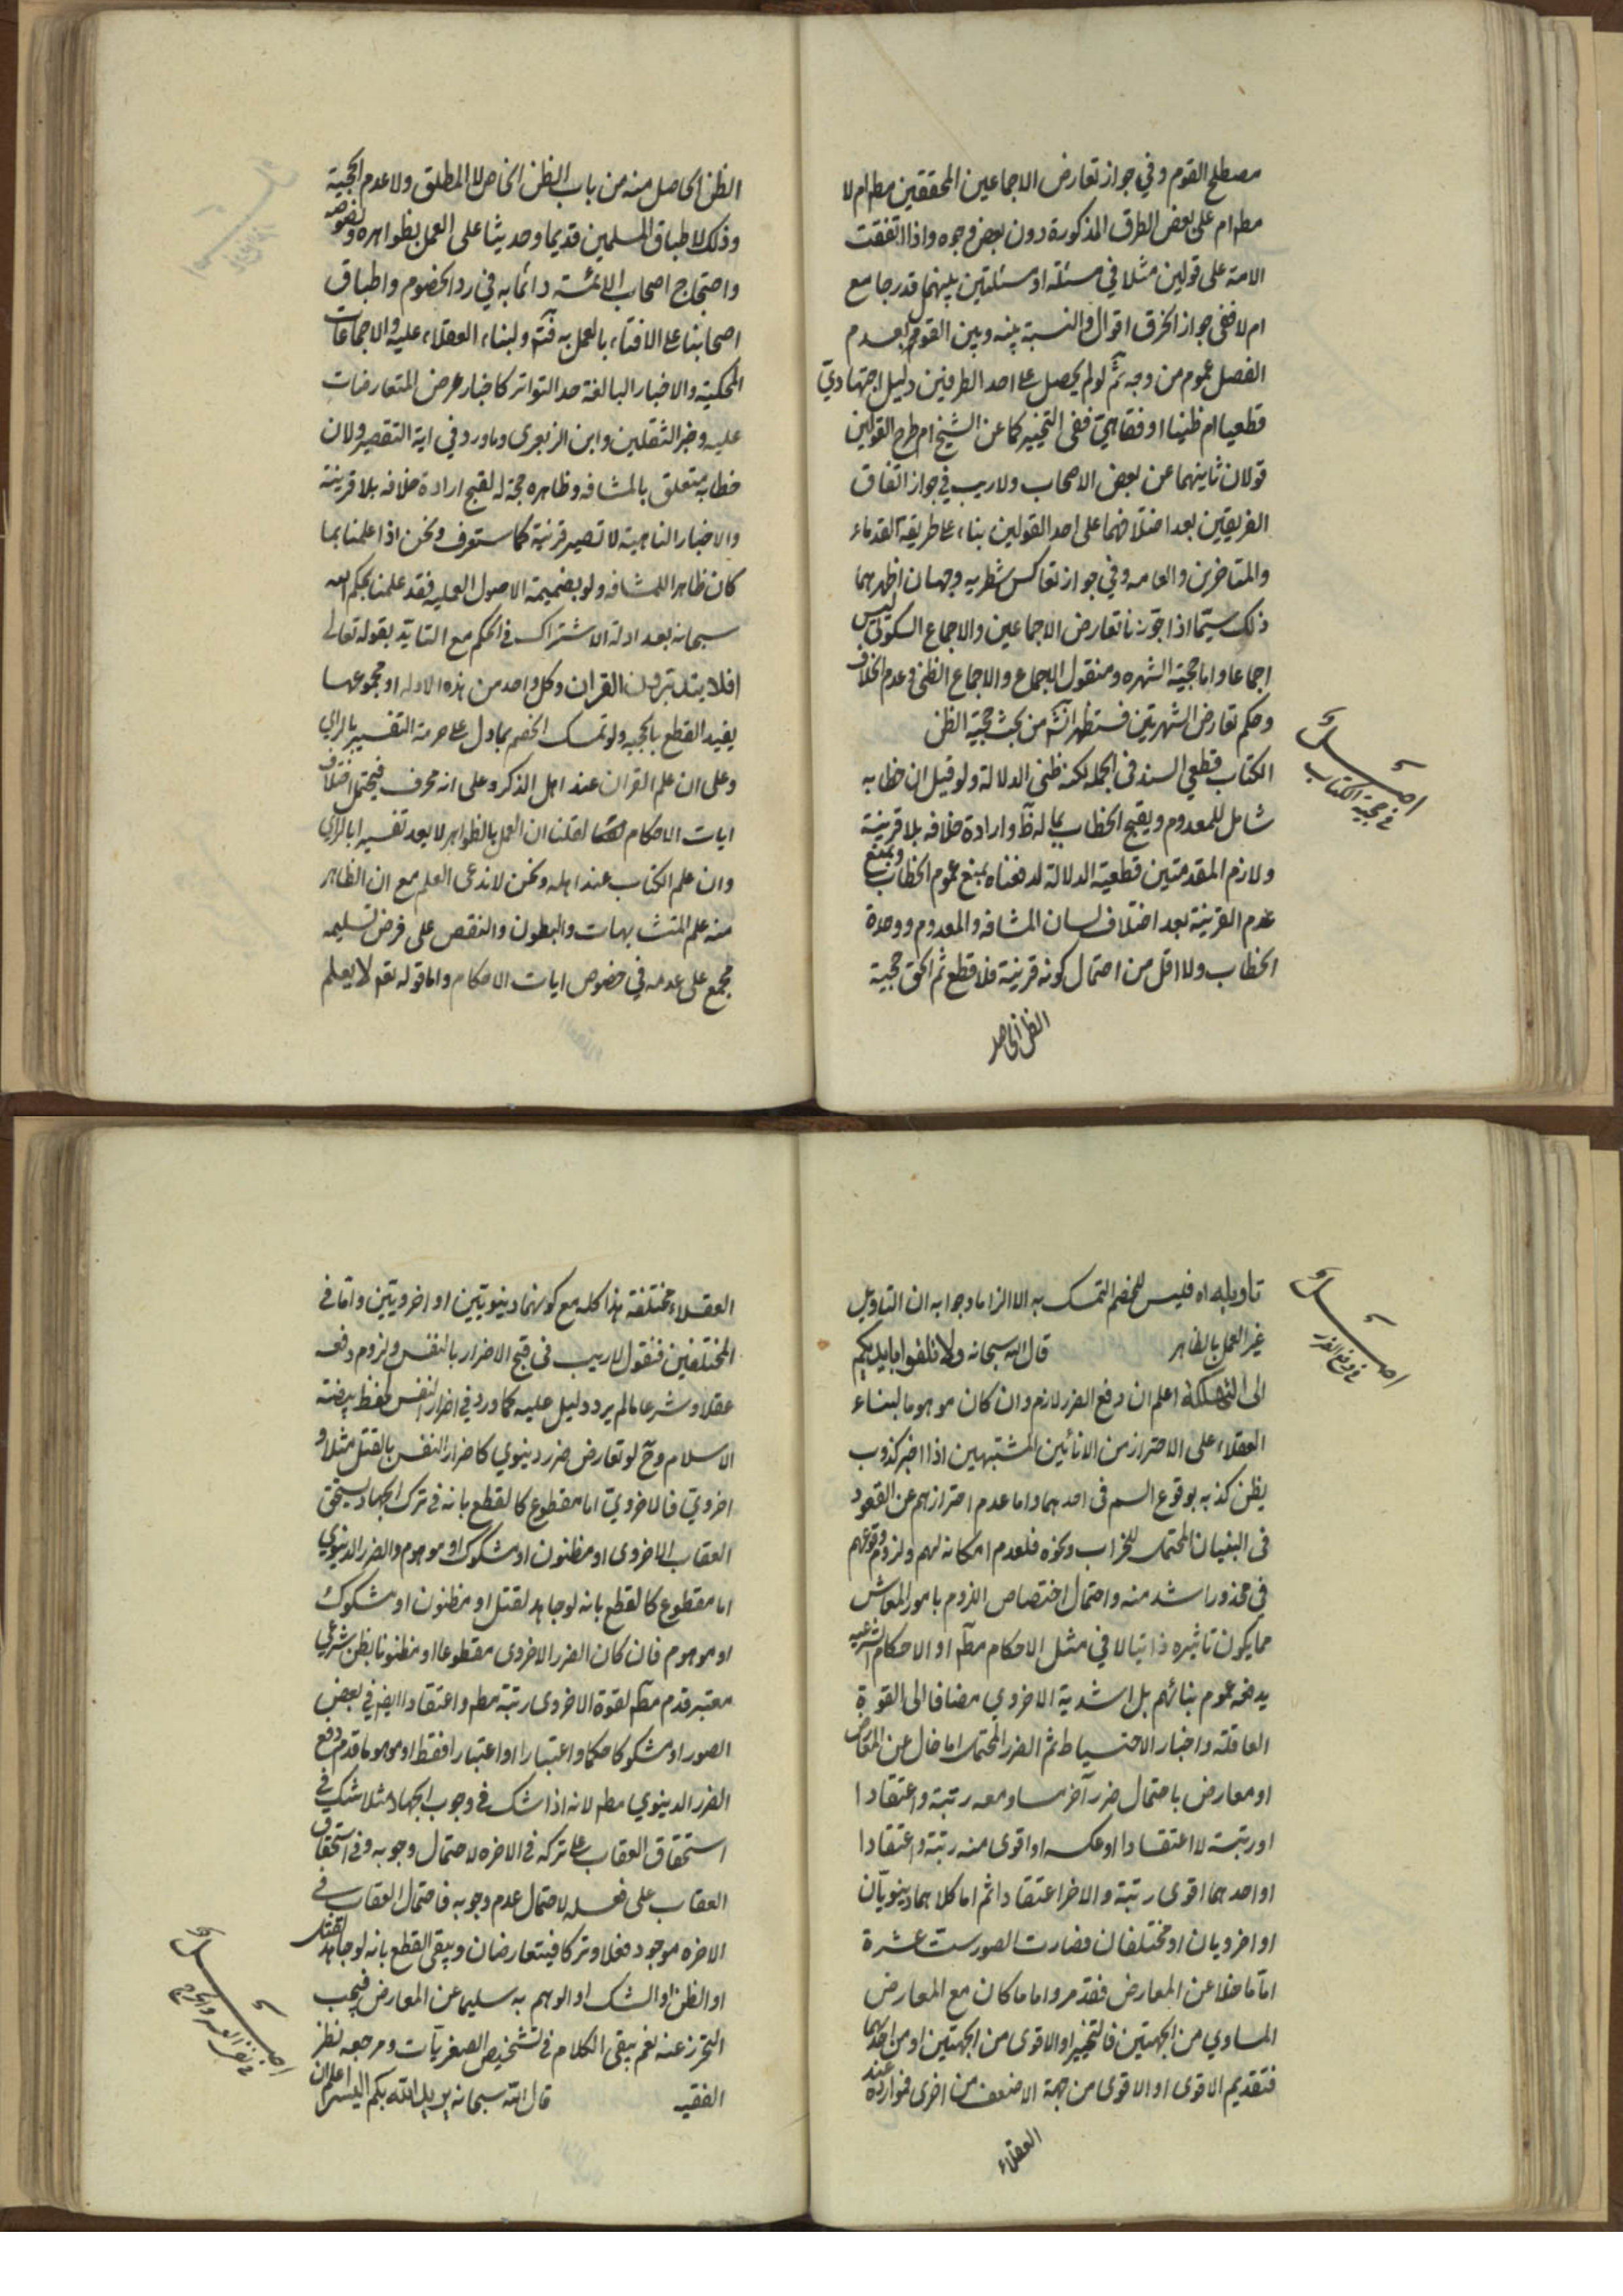 مصطلح القوم وفي جواز تعارض الاجماعين المحققين مطم ام لا
مطم ام على بعض الطرق المذكورة دون بعض وجوه واذا اتفقت
الامة على قولين مثلا في مسئلة او مسئلتين بينهما قدر جامع
ام لا ففي جواز الخرق اقوال والنسبة بينه وبين القول بعدم
الفصل عموم من وجه ثم لو لم يحصل على احد الطرفين دليل اجتهادي
قطعيا ام ظنيا او فقاهتي ففي التخيير كما عن الشيخ ام طرح القولين
قولان ثانيهما عن بعض الاصحاب ولا ريب في جواز اتفاق
الفريقين بعد اختلافهما على احد القولين بناء على طريقة القدماء
والمتاخرين والعامه وفي جواز تعاكس شطريه وجهان اظهرهما
ذلك سيما اذا جوزنا تعارض الاجماعين والاجماع السكوتي ليس
اجماعا واما حجية الشهره ومنقول الاجماع والاجماع الظني وعدم الخلاف
وحكم تعارض الشهرتين فستظهر انش من بحث حجية الظن
اصل
في حجية الكتاب
الكتاب قطعي السند في الجمله لكنه ظني الدلالة ولو قيل ان خطابه
شامل للمعدوم ويقبح الخطاب بما له ظ وارادة خلافه بلا قرينة
ولازم المقدمتين قطعية الدلالة لدفعناه بمنع عموم الخطاب وبمنع
عدم القرينة بعد اختلاف لسان المشافه والمعدوم ووحدة
الخطاب ولا اقل من احتمال كونه قرينة فلا قطع ثم الحق حجية
الظن الحاصل
الظن الحاصل منه من باب الظن الخاص لا المطلق ولا عدم الحجية
وذلك لاطباق المسلمين قديما وحديثا على العمل بظواهره ونصوصه
واحتجاج اصحاب الائمة دائما به في رد الخصوم واطباق
اصحابنا على الافتاء بالعمل به فتم ولبناء العقلاء عليه والاجماعات
المحكية والاخبار البالغة حد التواتر كاخبار عرض المتعارضات
عليه وخبر الثقلين وابن الزبعرى وما ورد في اية التقصير ولان
خطابه متعلق بالمشافه وظاهره حجة له لقبح ارادة خلافه بلا قرينة
والاخبار الناهية لا تصير قرنية كما ستعرف ونحن اذا علمنا بما
كان ظاهرا للمشافه ولو بضميمة الاصول العمليه فقد علمنا بحكم الله
سبحانه بعد ادلة الاشتراك في الحكم مع التايد بقوله تعالى
افلا يتدبرون القران وكل واحد من هذه الادله او مجموعها
يفيد القطع بالحجيه ولو تمسك الخصم بما دل على حرمة التفسير بالراي
وعلى ان علم القران عند اهل الذكر وعلى انه محرف فيحتمل اختلاف
ايات الاحكام لقلنا ان العمل بالظواهر لا يعد تفسيرا بالراي
وان علم الكتاب عند اهله ونحن لا ندعى العلم مع ان الظاهر
منه علم المتشابهات والبطون والنقص على فرض تسليمه
مجمع على عدمه في خصوص ايات الاحكام واما قوله تعم لا يعلم
اصل
في دفع الضرر
تاويله اه فليس للخصم التمسك به الا الزاما وجوابه ان التاويل
غير العمل بالظاهر قال الله سبحانه ولا تلقوا بايديكم
الى التهلكة اعلم ان دفع الضرر لازم وان كان موهوما لبناء
العقلاء على الاحتراز من الانائين المشتبهين اذا اخبر كذوب
يظن كذبه بوقوع السم في احدهما واما عدم احترازهم عن القعود
في البنيان المحتمل للخراب ونحوه فلعدم امكانه لهم ولزوم وقوعهم
في محذور اشد منه واحتمال اختصاص اللزوم بامور المعاش
مما يكون تاثيره ذاتيا لا في مثل الاحكام مطم او الاحكام الشرعيه
يدفعه عموم بنائهم بل اشدية الاخروي مضافا الى القوة
العاقلة واخبار الاحتياط ثم الضرر المحتمل اما خال عن المعارض
او معارض باحتمال ضرر آخر مساو معه رتبة واعتقادا
او رتبة لا اعتقادا او عكسه او اقوى منه رتبة واعتقادا
او احدهما اقوى رتبة والاخر اعتقادا ثم اما كلاهما دينويان
او اخرويان او مختلفان فصارت الصور ست عشرة
اما ما خلا عن المعارض فقد مر واما ما كان مع المعارض
المساوي من الجهتين فالتخيير او الاقوى من الجهتين او من احدهما
فتقديم الاقوى او الاقوى من جهة الاضعف من اخرى فموارده عند
العقلاء
العقلاء مختلفة هذا كله مع كونهما دينويتين او اخرويتين واما في
المختلفين فنقول لا ريب في قبح الاضرار بالنفس ولزوم دفعه
عقلا وشرعا ما لم يرد دليل عليه كما ورد في اضرار النفس لحفظ بيضة
الاسلام وح لو تعارض ضرر دينوي كاضرار النفس بالقتل مثلا و
اخروي فالاخروي اما مقطوع كالقطع بانه في ترك الجهاد يستحق
العقاب الاخروى او مظنون او مشكوك او موهوم والضرر الدينوي
اما مقطوع كالقطع بانه لو جاهد لقتل او مظنون او مشكوك
او موهوم فان كان الضرر الاخروى مقطوعا او مظنونا بظن شرعي
معتبر قدم مطم لقوة الاخروى رتبة مطم واعتقادا ايضا في بعض
الصور او مشكوكا حكما واعتبارا او اعتبارا فقط او موهوما قدم دفع
الضرر الدينوي مطم لانه اذا شك في وجوب الجهاد مثلا شك في
استحقاق العقاب على تركه في الاخره لاحتمال وجوبه وفي استحقاق
العقاب على فعله لاحتمال عدم وجوبه فاحتمال العقاب في
الاخره موجود فعلا وتركا فيتعارضان ويبقى القطع بانه لو جاهد لقتل
او الظن او الشك او الوهم به سليما عن المعارض فيجب
التحرز عنه نعم يبقى الكلام في تشخيص الصغريات ومرجعه نظر
الفقيه قال الله سبحانه يريد الله بكم اليسر اعلم ان
اصل
في نفى العسر والحرج